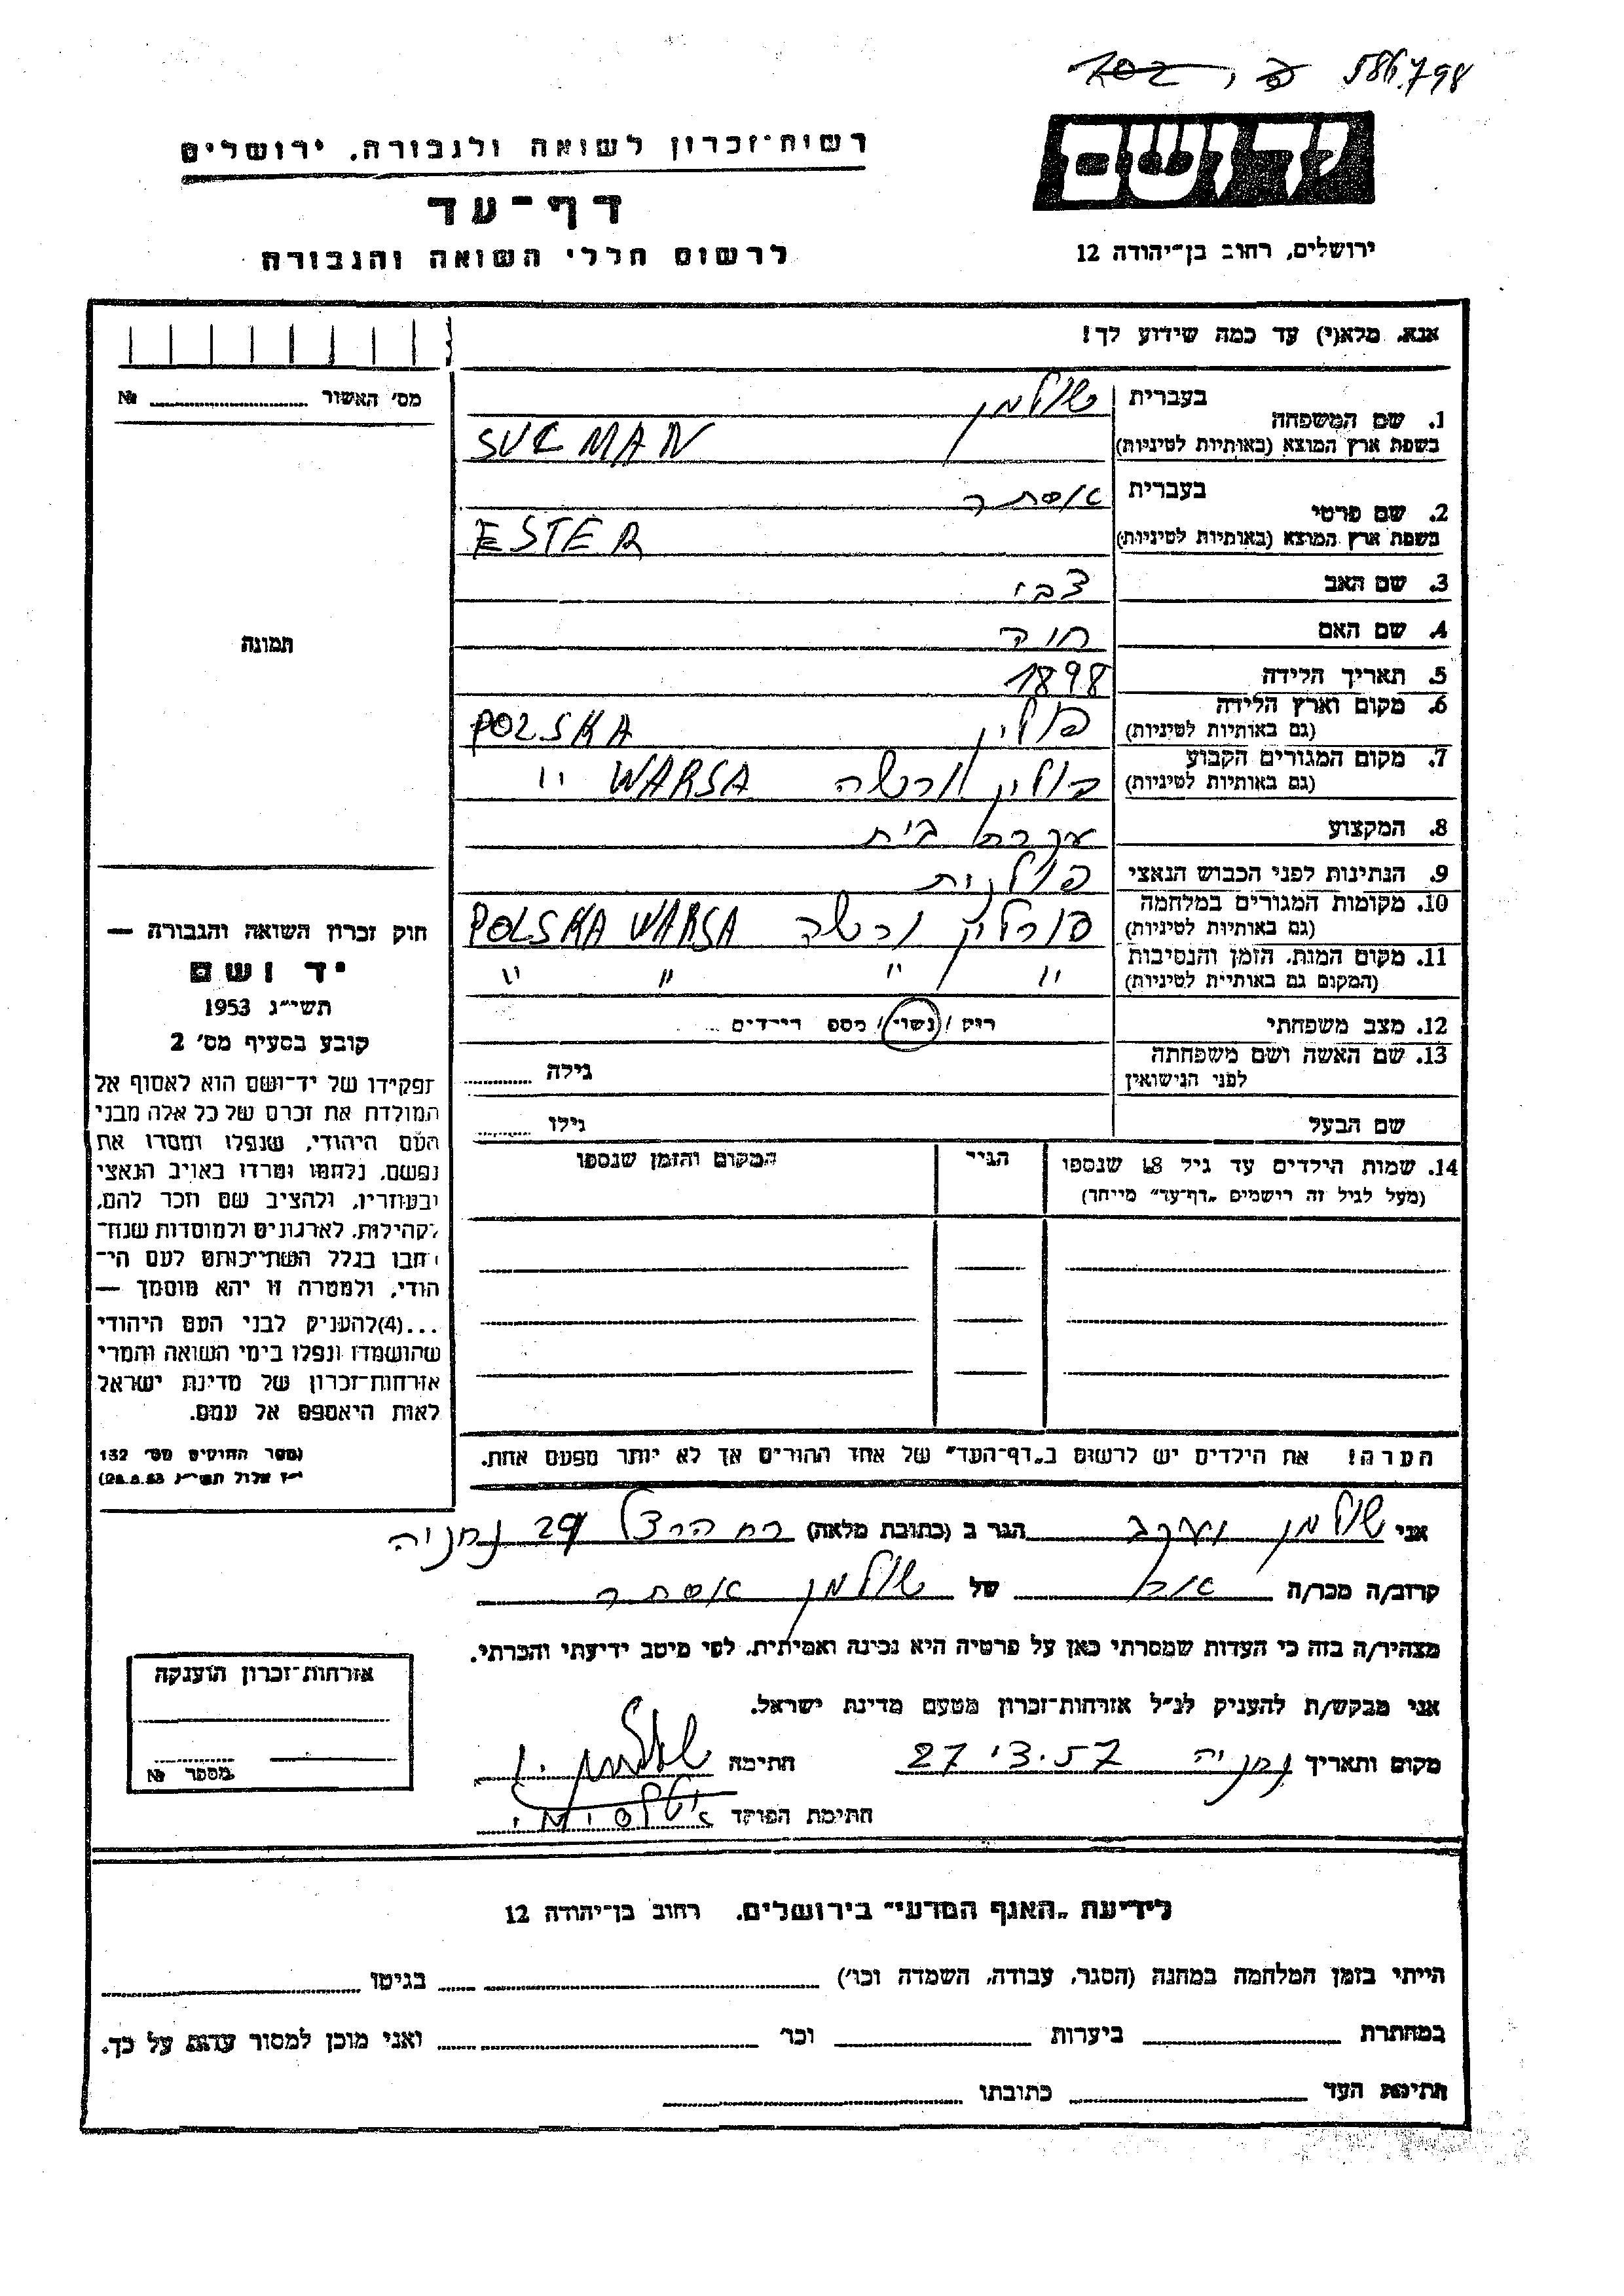 586.798
רשות־זכרון לשואה ולגבורה, ירושלים
יד ושם
דף־עד
לרשום חללי השואה והגבורה
ירושלים, רחוב בן־יהודה 12
אנא, מלא(י) עד כמה שידוע לך!
מס׳ האשור № 
1. שם המשפחה בעברית שולמן
בשפת ארץ המוצא (באותיות לטיניות) SULMAN
2. שם פרטי בעברית אסתר
בשפת ארץ המוצא (באותיות לטיניות) ESTER
3. שם האב צבי
4. שם האם חוה
תמונה
5. תאריך הלידה 1898
6. מקום וארץ הלידה פולין POLSKA
(גם באותיות לטיניות)
7. מקום המגורים הקבוע פולין ורשה WARSA "
(גם באותיות לטיניות)
8. המקצוע עקרת בית
9. הנתינות לפני הכבוש הנאצי פולנית
10. מקומות המגורים במלחמה ורשה POLSKA WARSA
(גם באותיות לטיניות)
11. מקום המות, הזמן והנסיבות " " " "
(המקום גם באותיות לטיניות)
12. מצב משפחתי רוק / נשוי / מספר הילדים ...
13. שם האשה ושם משפחתה
לפני הנישואין גילה
שם הבעל גילו
14. שמות הילדים עד גיל 18 שנספו הגיל המקום והזמן שנספו
(מעל לגיל זה רישמים „דף־עד" מייחד)
חוק זכרון השואה והגבורה —
יד ושם
תשי״ג 1953
קובע בסעיף מס׳ 2
תפקידו של יד־ושם הוא לאסוף אל
המולדת את זכרם של כל אלה מבני
העם היהודי, שנפלו ומסרו את
נפשם, נלחמו ומרדו באויב הנאצי
ובעוזריו, ולהציב שם וזכר להם,
לקהילות, לארגונים ולמוסדות שנח־
רבו בגלל השתייכותם לעם הי־
הודי, ולמטרה זו יהא מוסמך —
...(4) להעניק לבני העם היהודי
שהושמדו ונפלו בימי השואה והמרי
אזרחות־זכרון של מדינת ישראל
לאות היאספם אל עמם.
(ספר החוקים מס׳ 132
י״ז אלול תשי״ג 28.8.53)
הערה! את הילדים יש לרשום ב„דף־העד" של אחד ההורים אך לא יותר מפעם אחת.
אני שולמן יעקב הגר ב (כתובת מלאה) רח הרצל 29 נתניה
קרוב/ה מכר/ה של שולמן אסתר
מצהיר/ה בזה כי העדות שמסרתי כאן על פרטיה היא נכונה ואמיתית, לפי מיטב ידיעתי והכרתי.
אני מבקש/ת להעניק לנ״ל אזרחות־זכרון מטעם מדינת ישראל.
מקום ותאריך נתניה חתימה שולמן י.
חתימת הפוקד
אזרחות־זכרון הוענקה
מספר №
לידיעת „האגף המדעי" בירושלים, רחוב בן־יהודה 12
הייתי בזמן המלחמה במחנה (הסגר, עבודה, השמדה וכו׳) בגיטו
במחתרת ביערות וכו׳ ואני מוכן למסור עדות על כך.
חתימת העד כתובתו